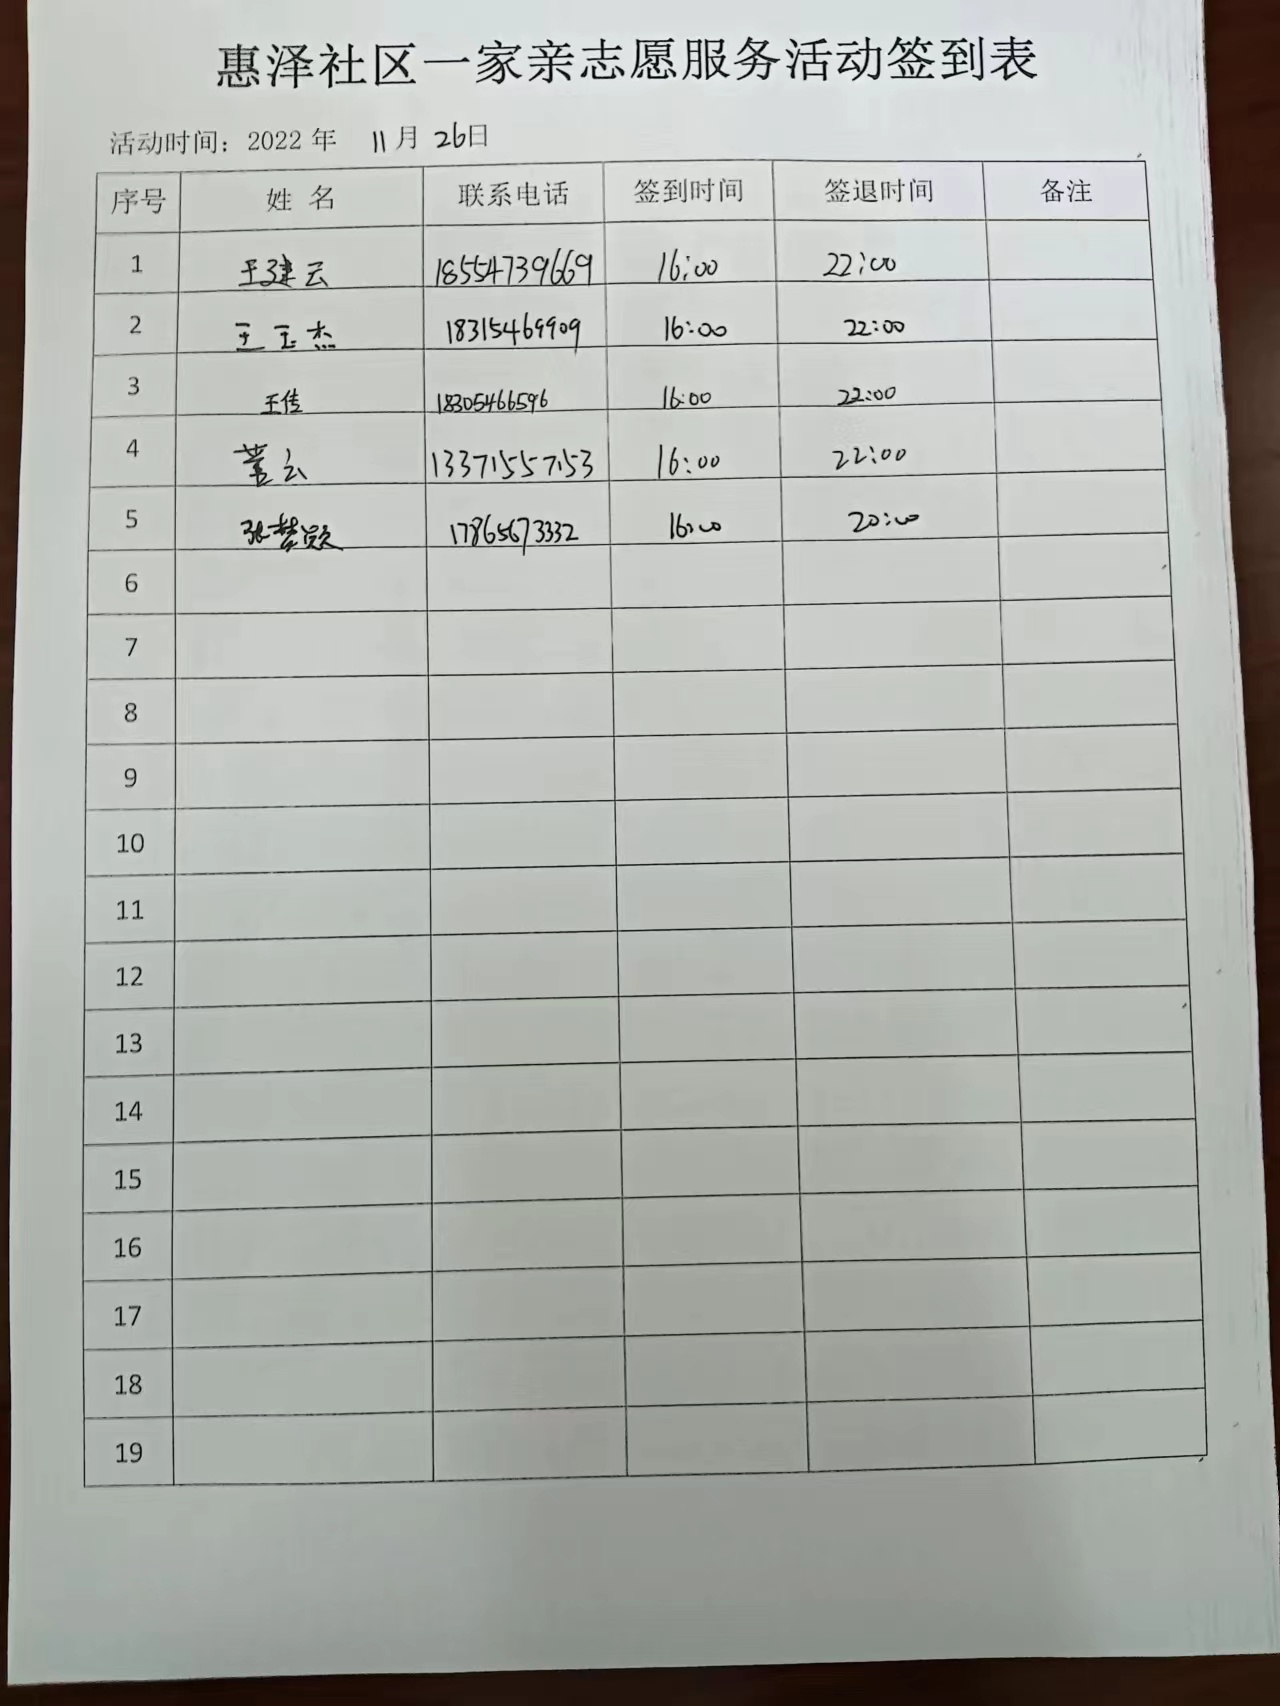 惠泽社区一家亲志愿服务活动签到表
活动时间：2022 年 11 月 26日
序号 姓 名 联系电话 签到时间 签退时间 备注
1 于建云 18554739669 16:00 22:00
2 王玉杰 18315469909 16:00 22:00
3 王传 18305466596 16:00 22:00
4 董云 13371557153 16:00 22:00
5 张梦 17865673332 16:00 20:00
6
7
8
9
10
11
12
13
14
15
16
17
18
19